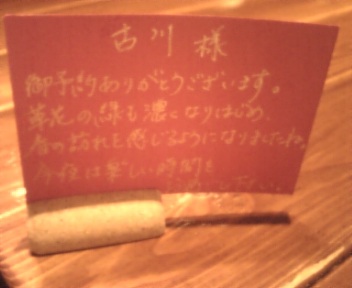 古川 様
御予約ありがとうございます。
草花の緑も濃くなりはじめ、
春の訪れを感じるようになりましたね。
今夜は楽しい時間を
下さい。